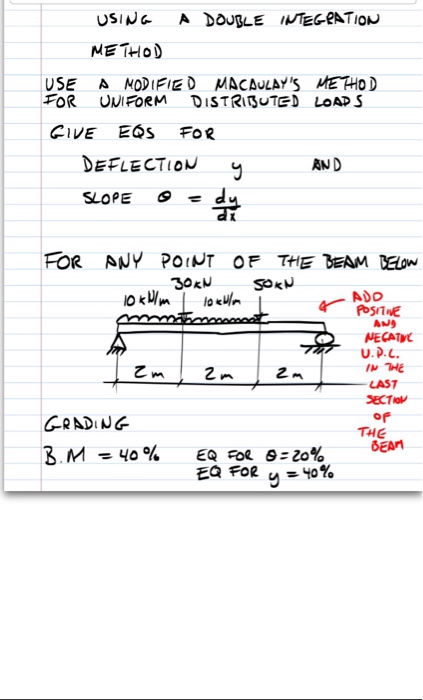 USING A DOUBLE INTEGRATION
METHOD
USE A MODIFIED MACAULAY'S METHOD
FOR UNIFORM DISTRIBUTED LOADS
GIVE EQS FOR
DEFLECTION y AND
SLOPE θ = dy/dx
FOR ANY POINT OF THE BEAM BELOW
30kN 50kN
10kN/m 10kN/m
ADD
POSITIVE
AND
NEGATIVE
U.D.L.
IN THE
LAST
SECTION
OF
THE
BEAM
2m 2m 2m
GRADING
B.M = 40% EQ FOR θ = 20%
EQ FOR y = 40%